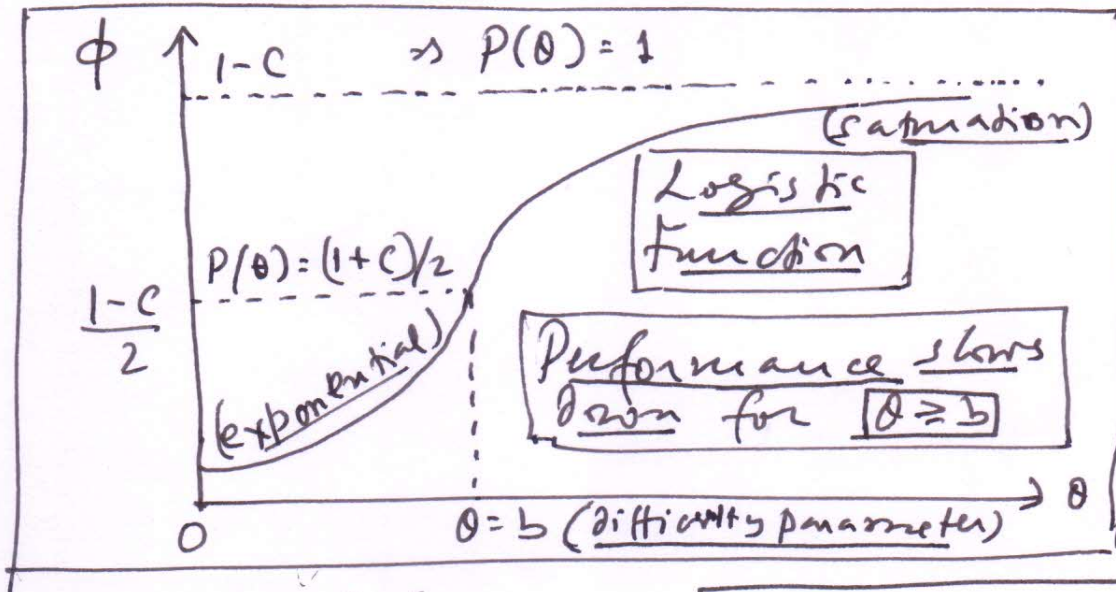 ϕ
1-C ⇒ P(θ) = 1
(saturation)
Logistic
Function
P(θ) = (1+C)/2
1-C
2
(exponential)
Performance slows
down for θ ≥ b
0
θ = b (difficulty parameter)
θ